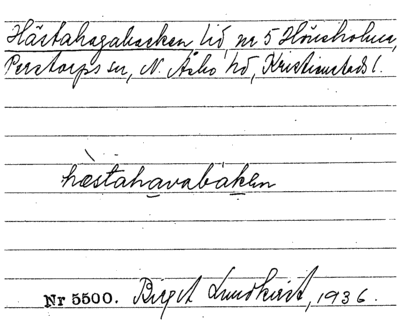 Hästahagabacken lid nr 5 Hönsholma,
Perstorps sn, N. Åsbo hd, Kristianstads l.
hæ̀stahavabak̲en
Nr 5500. Birgit Lundkvist, 1936.